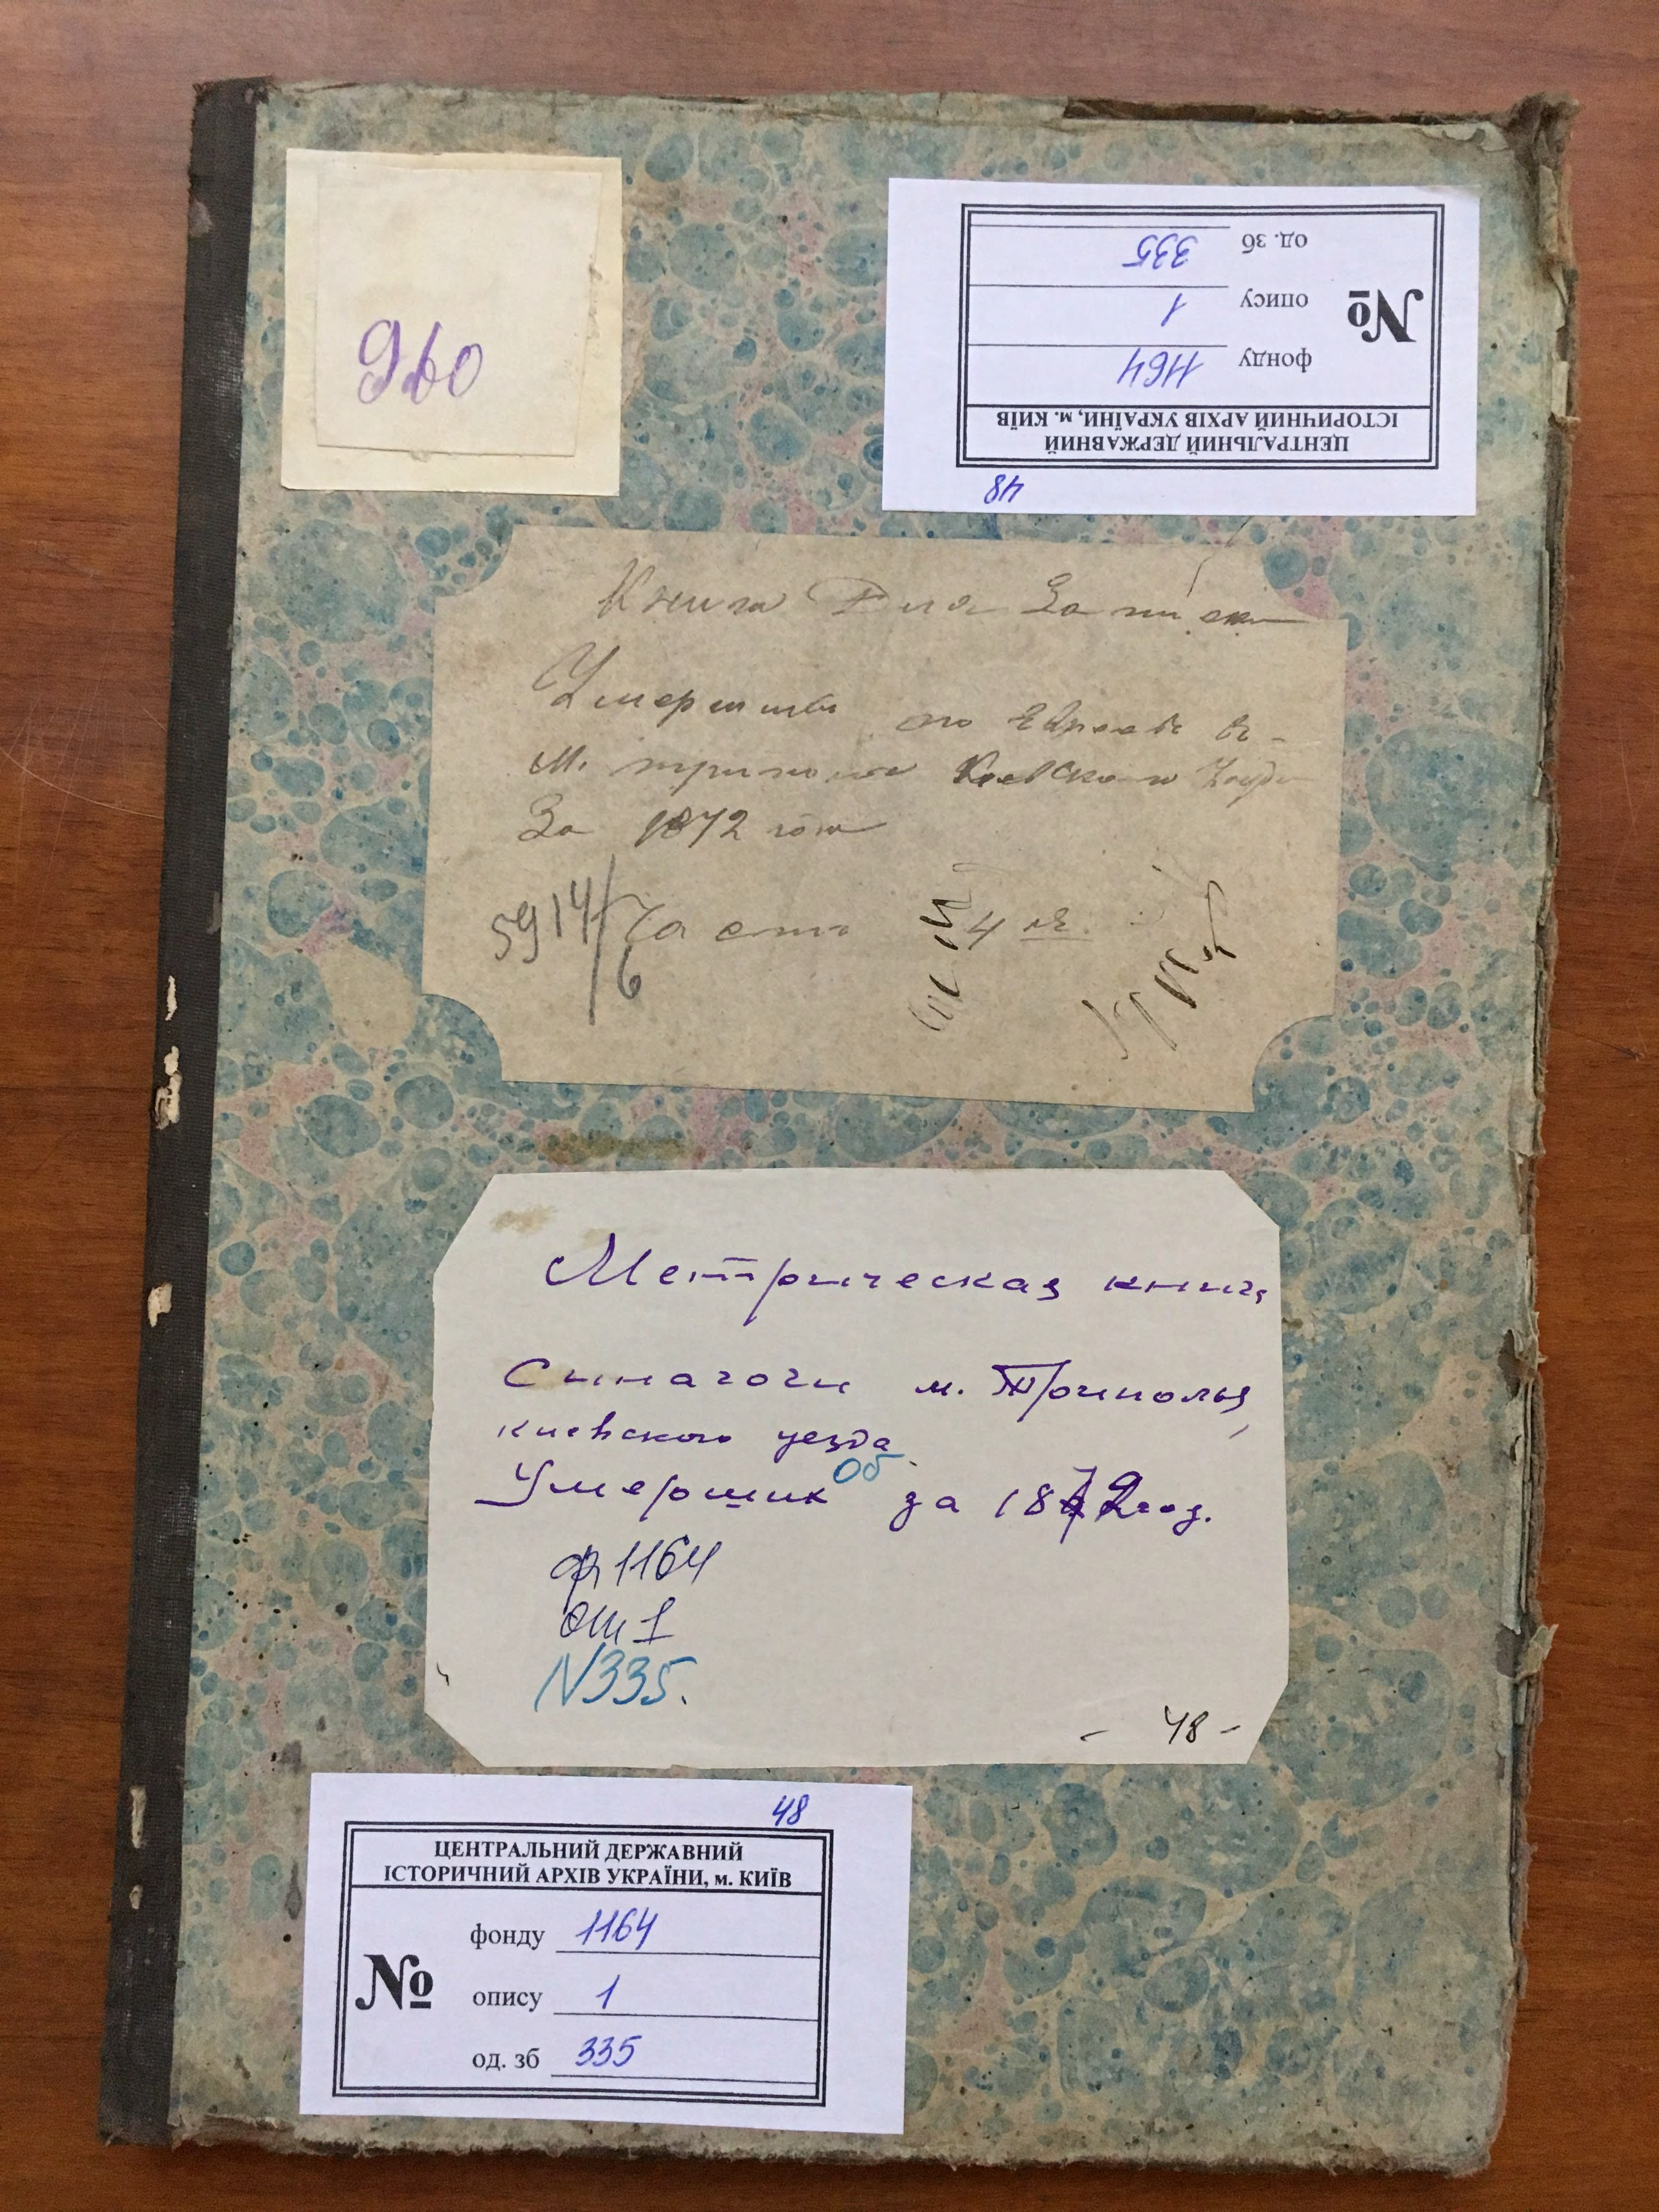 960
ЦЕНТРАЛЬНИЙ ДЕРЖАВНИЙ
ІСТОРИЧНИЙ АРХІВ УКРАЇНИ, м. КИЇВ
№
фонду 1164
опису 1
од. зб 335
48
Книга Для Записки
Умершихъ
М. Киевского
За 1872 годъ
5914/6
Часть 4 я.
Метрическая книга
Синагоги м. Триполья
киевского уезда
Об
Умерших за 1872 год.
ф 1164
оп 1
N 335.
- 48 -
48
ЦЕНТРАЛЬНИЙ ДЕРЖАВНИЙ
ІСТОРИЧНИЙ АРХІВ УКРАЇНИ, м. КИЇВ
№
фонду 1164
опису 1
од. зб 335